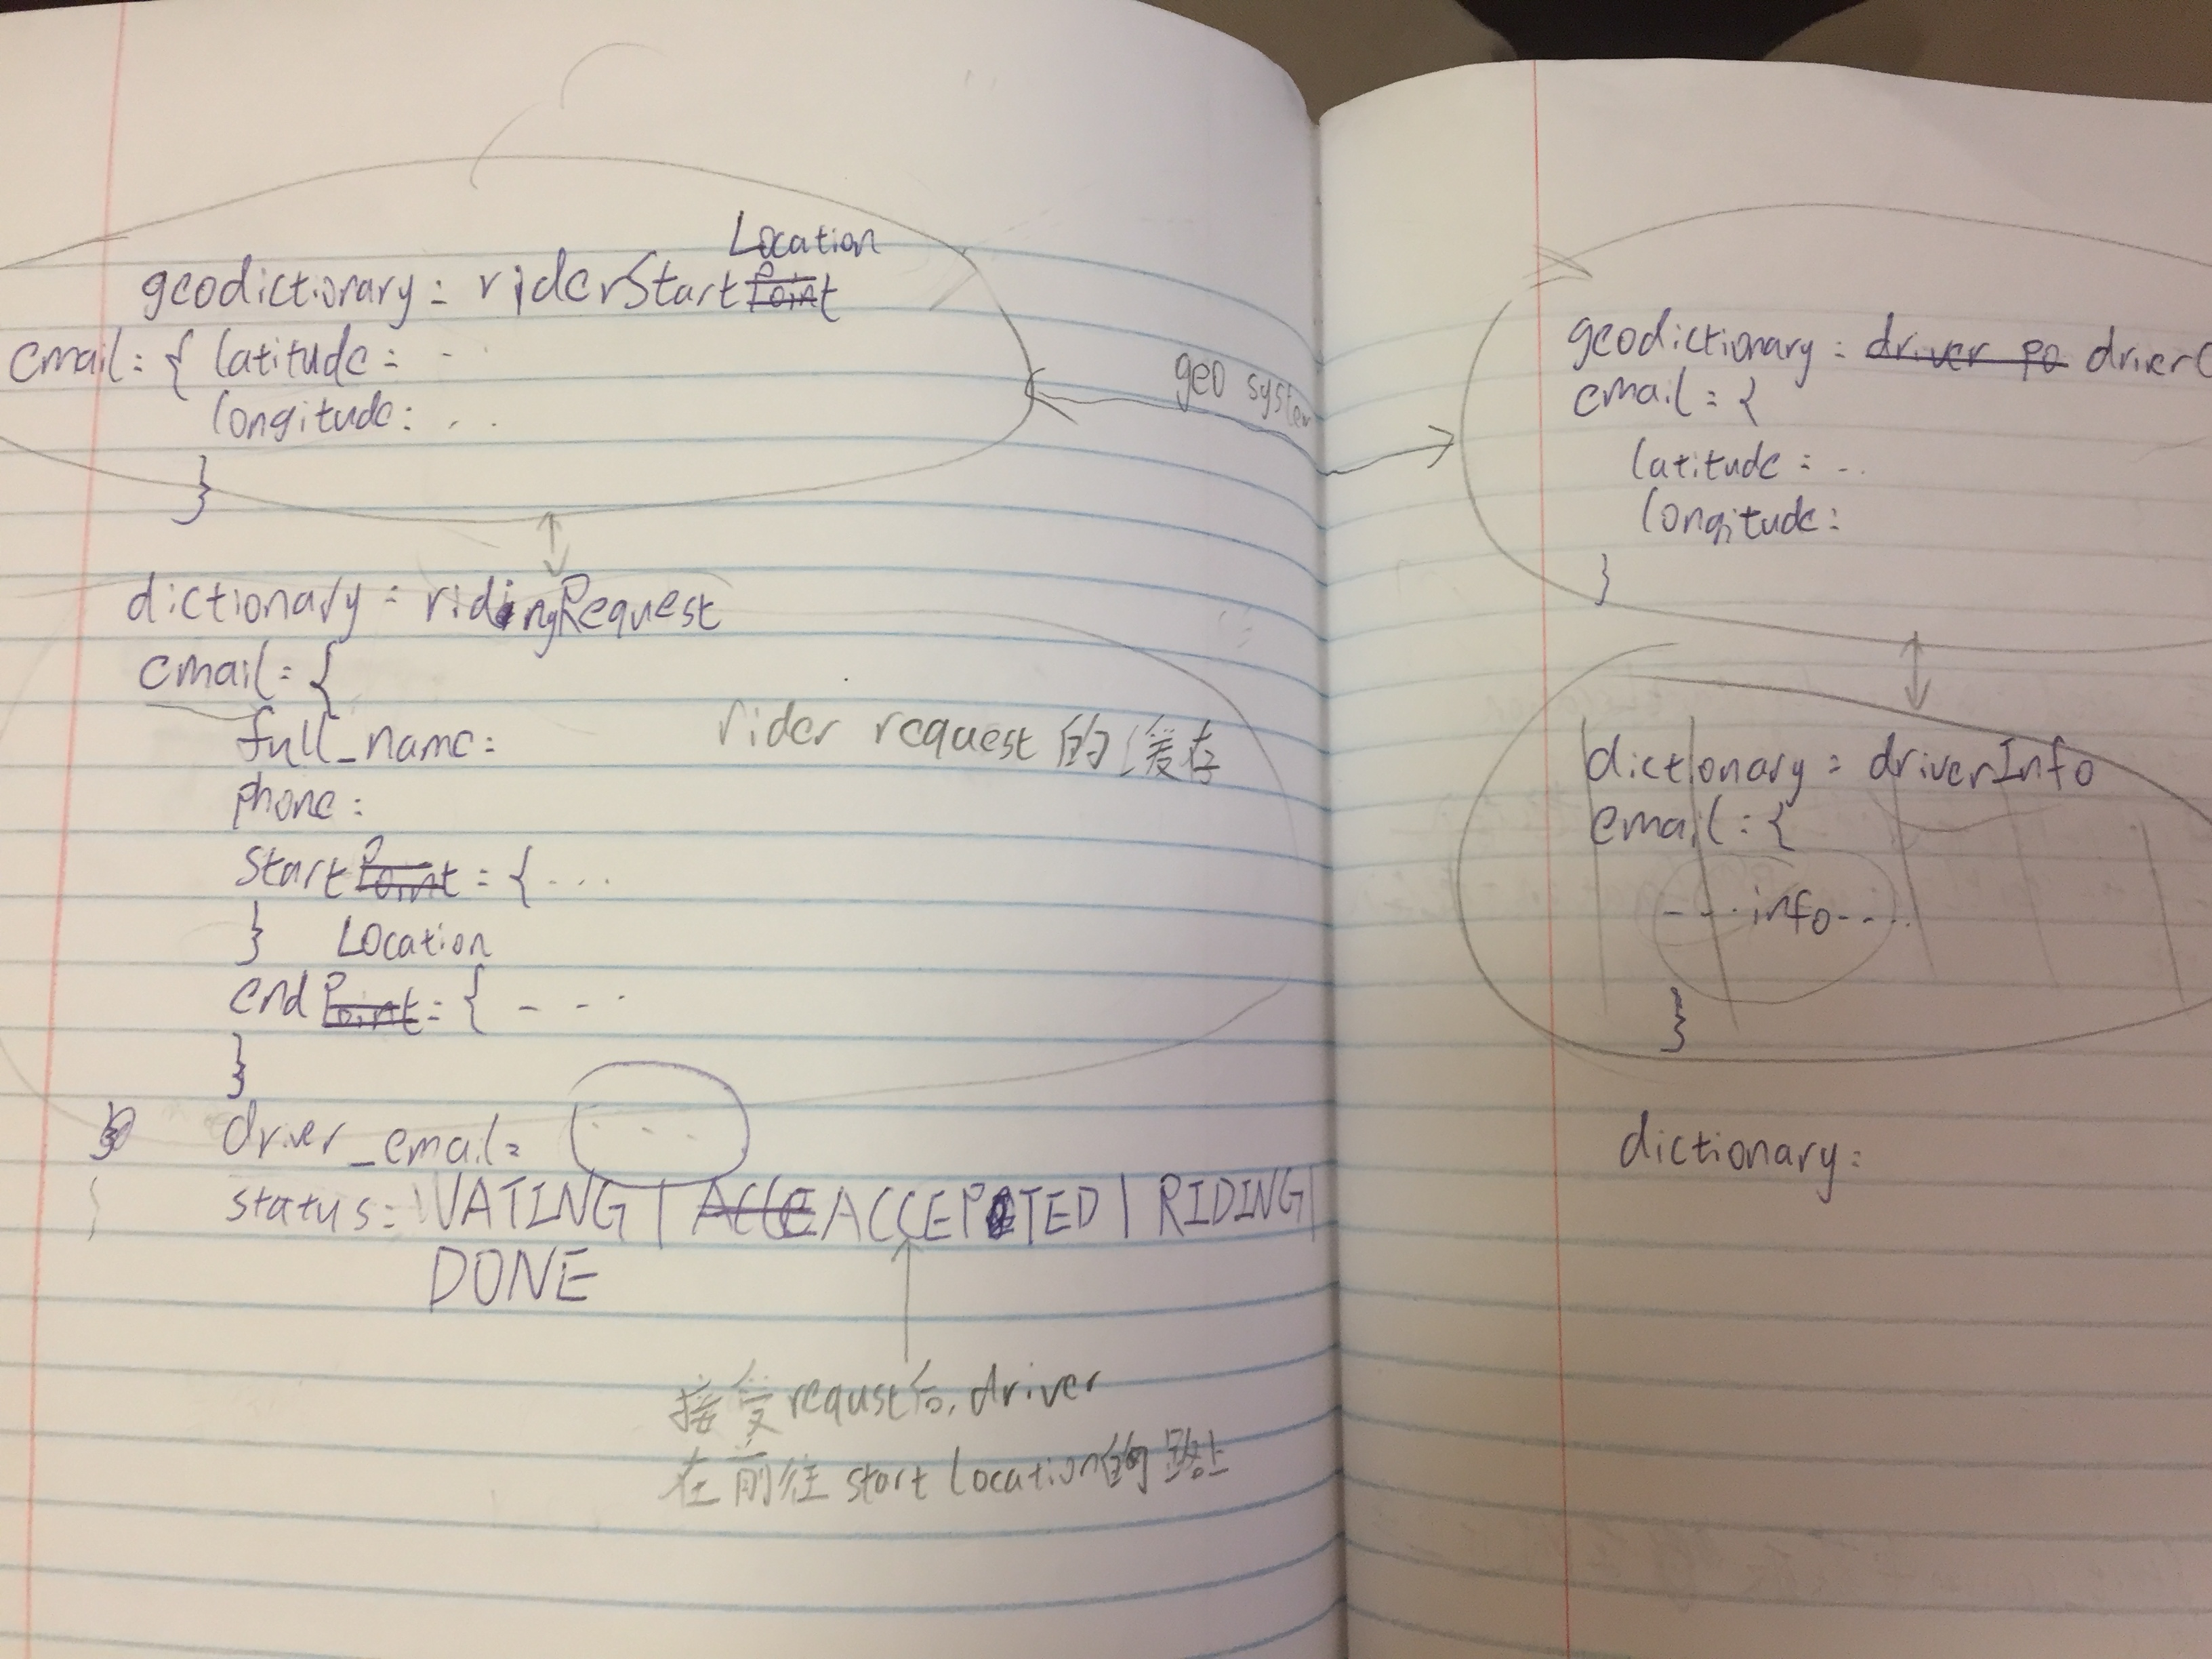 Location
geodictionary: riderStart Point
email: { latitude: - ..
longitude: ...
}
geo system
dictionary: ridingRequest
email: {
full_name:
rider request 的缓存
phone:
start Point: { ...
} Location
end Point: { - - .
}
driver_email: - - -
status: WATING | Acce ACCEPTED | RIDING |
DONE
接受requst后, driver
在前往 start location的路上
geodictionary: driver po driver
email: {
latitude: ..
longitude:
}
dictionary: driverInfo
email: {
- - .. info - - ..
}
dictionary: